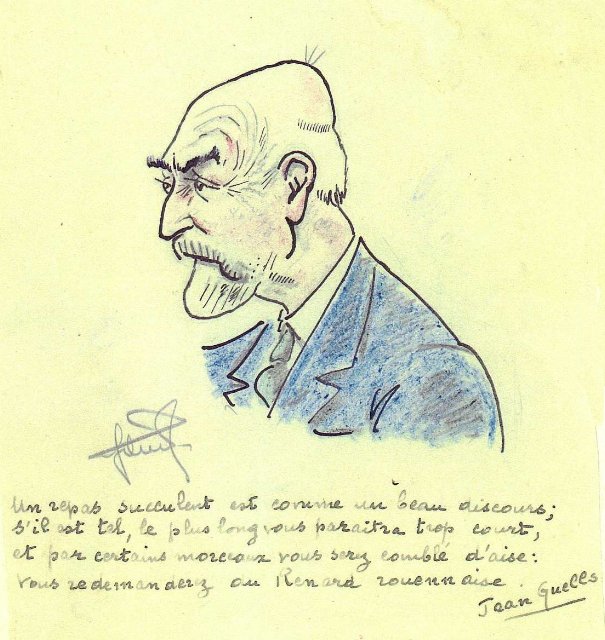 Un repas succulent est comme un beau discours;
s'il est tel, le plus long vous paraitra trop court,
et par certains morceaux vous serez comblé d'aise:
Vous redemanderez du Renard rouennaise.
Jean Guells